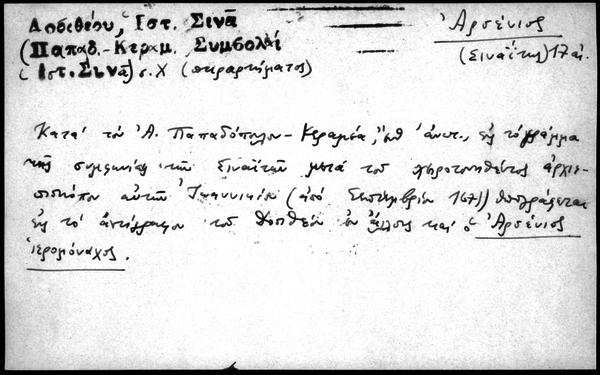 Δοσιθέου, Ἱστ. Σινᾶ
(Παπαδ.-Κεραμ. Συμβολαί
Ἱστ. Σινᾶ) σ. Χ (παραρτήματος)
Ἀρσένιος
(Σιναΐτης) 17 αἰ.
Κατά τόν Ἀ. Παπαδόπουλον-Κεραμέα, ἔνθ' ἀνωτ., εἰς τό γράμμα
τῆς συμφωνίας τῶν Σιναϊτῶν μετά τοῦ χειροτονηθέντος ἀρχιε-
πισκόπου αὐτῶν Ἰωαννικίου (ἀπό Σεπτεμβρίου 1671) ὑπογράφεται
εἰς τό ἀντίγραφον τοῦ ἐν ἄλλοις καί ὁ Ἀρσένιος
ἱερομόναχος.